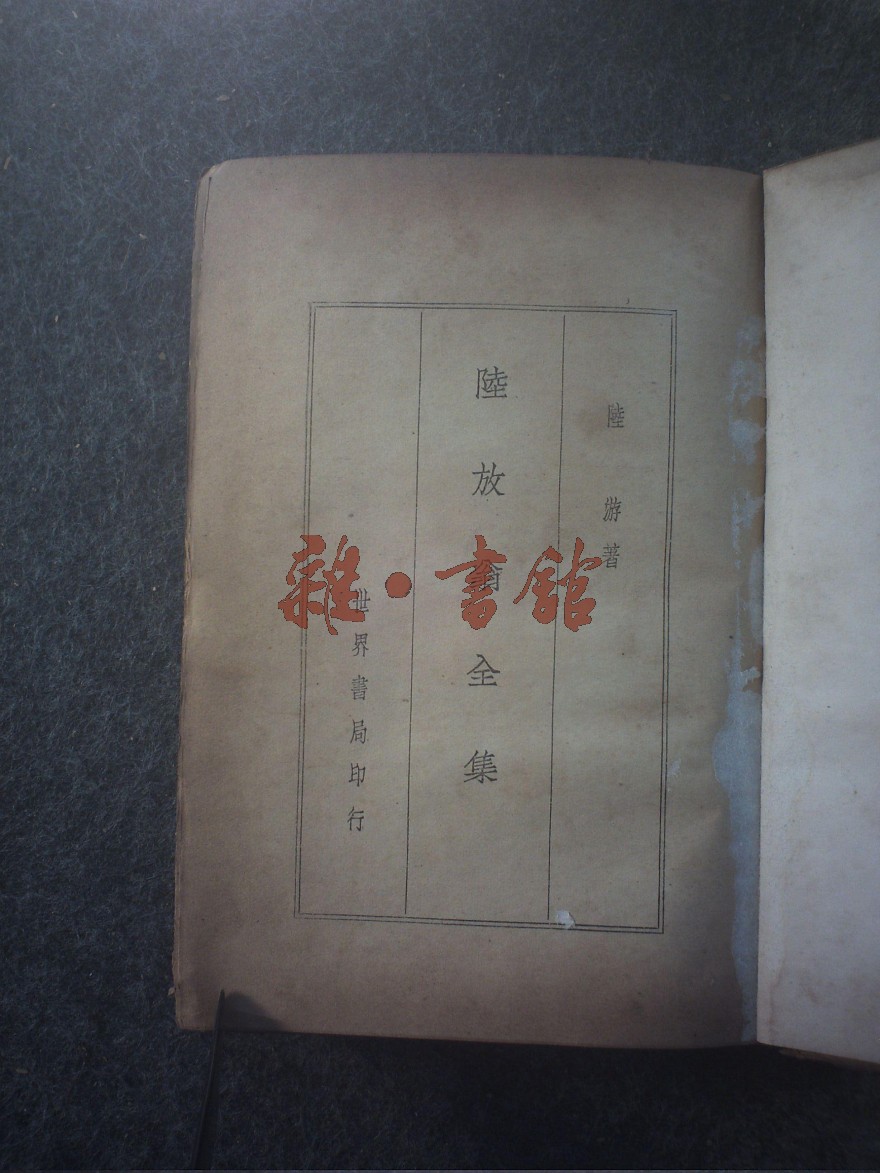 陸游著
陸放翁全集
世界書局印行
雜·書館